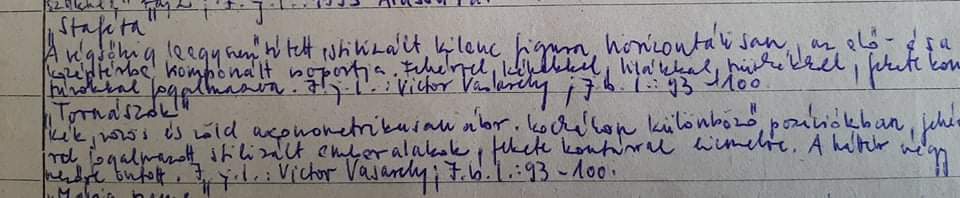 "Stafeta"
A végsőkig leegyszerűsített, stilizált kilenc figura horizontálisan, az elő- és a
középtérbe komponált csoportja. Fehérrel, kékekkel, lilákkal, szürkékkel, fekete kon
túrokkal fogalmazva. J. j. l.: Victor Vasarely; J. b. l.: 93-100.
"Tornászok"
Kék, vörös és zöld axonometrikusan ábr. kockákon különböző pozíciókban, fehér
rel fogalmazott stilizált emberalakok, fekete kontúrral kiemelve. A háttér négy
bontott. J. j. l.: Victor Vasarely; J. b. l.: 93-100.